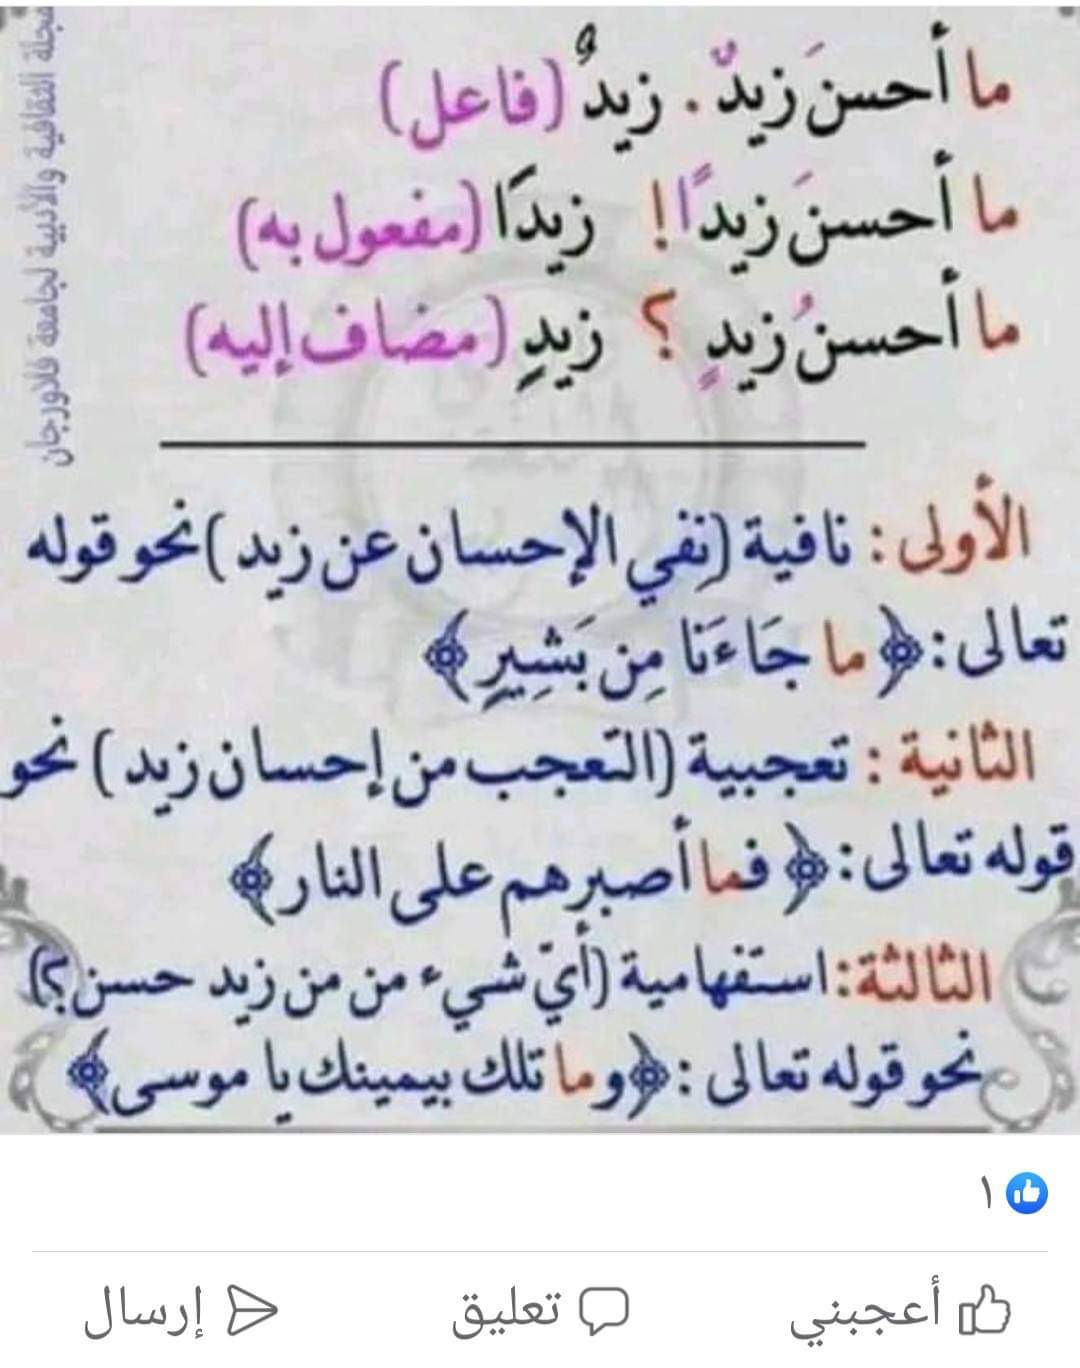 ما أحسنَ زيدٌ. زيدٌ (فاعل)
ما أحسنَ زيدًا! زيدًا (مفعول به)
ما أحسنُ زيدٍ؟ زيدٍ (مضاف إليه)
الأولى: نافية (نفي الإحسان عن زيد) نحو قوله
تعالى: ﴿ما جَاءَنَا مِن بَشِيرٍ﴾
الثانية: تعجبية (التعجب من إحسان زيد) نحو
قوله تعالى: ﴿فما أصبرهم على النار﴾
الثالثة: استفهامية (أيّ شيء من من زيد حسن؟)
نحو قوله تعالى: ﴿وما تلك بيمينك يا موسى﴾
مجلة الثقافية والأدبية لجامعة فلاورجان
١
أعجبني تعليق إرسال